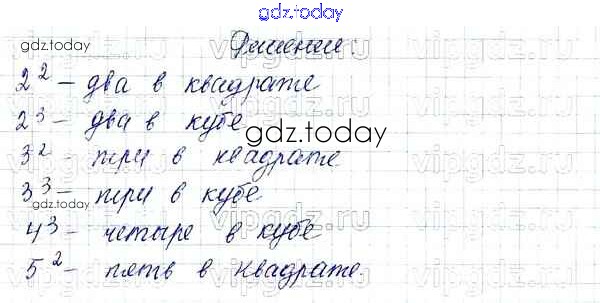 gdz.today
gdz.today
Решение:
2² – два в квадрате
2³ – два в кубе
gdz.today
3² – три в квадрате
3³ – три в кубе
gdz.today
4³ – четыре в кубе
5² – пять в квадрате
vipgdz.ru
vipgdz.ru
vipgdz.ru
vipgdz.ru
vipgdz.ru